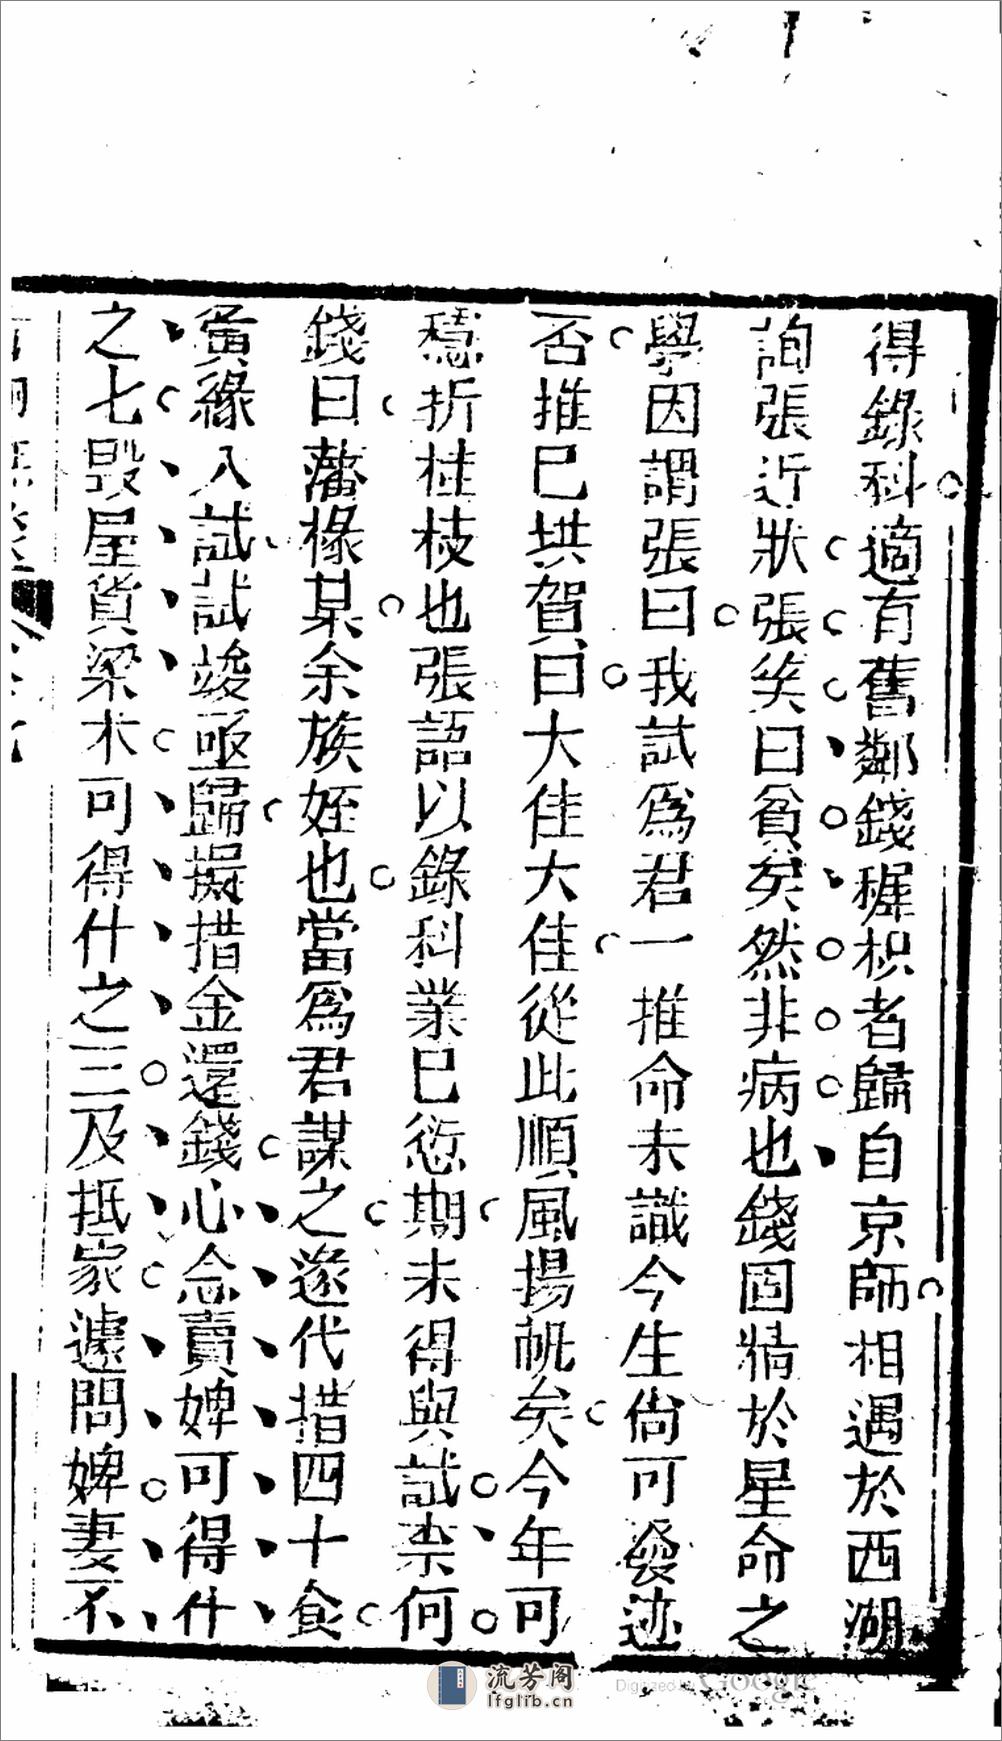 得錄科適有舊鄰錢樨枳者歸自京師相遇於西湖
詢張近狀張笑曰貧矣然非病也錢固精於星命之
學因謂張曰我試爲君一推命未識今生尙可發迹
否推巳拱賀曰大佳大佳從此順風揚帆矣今年可
穩折桂枝也張語以錄科業巳愆期未得與試柰何
錢曰藩椽某余族姪也當爲君謀之遂代措四十食
夤緣入試試竣亟歸擬措金還錢心念賣婢可得什
之七毀屋貨梁木可得什之三及抵家遽問婢妻不
流芳阁
lfglib.cn
Digitized by Google